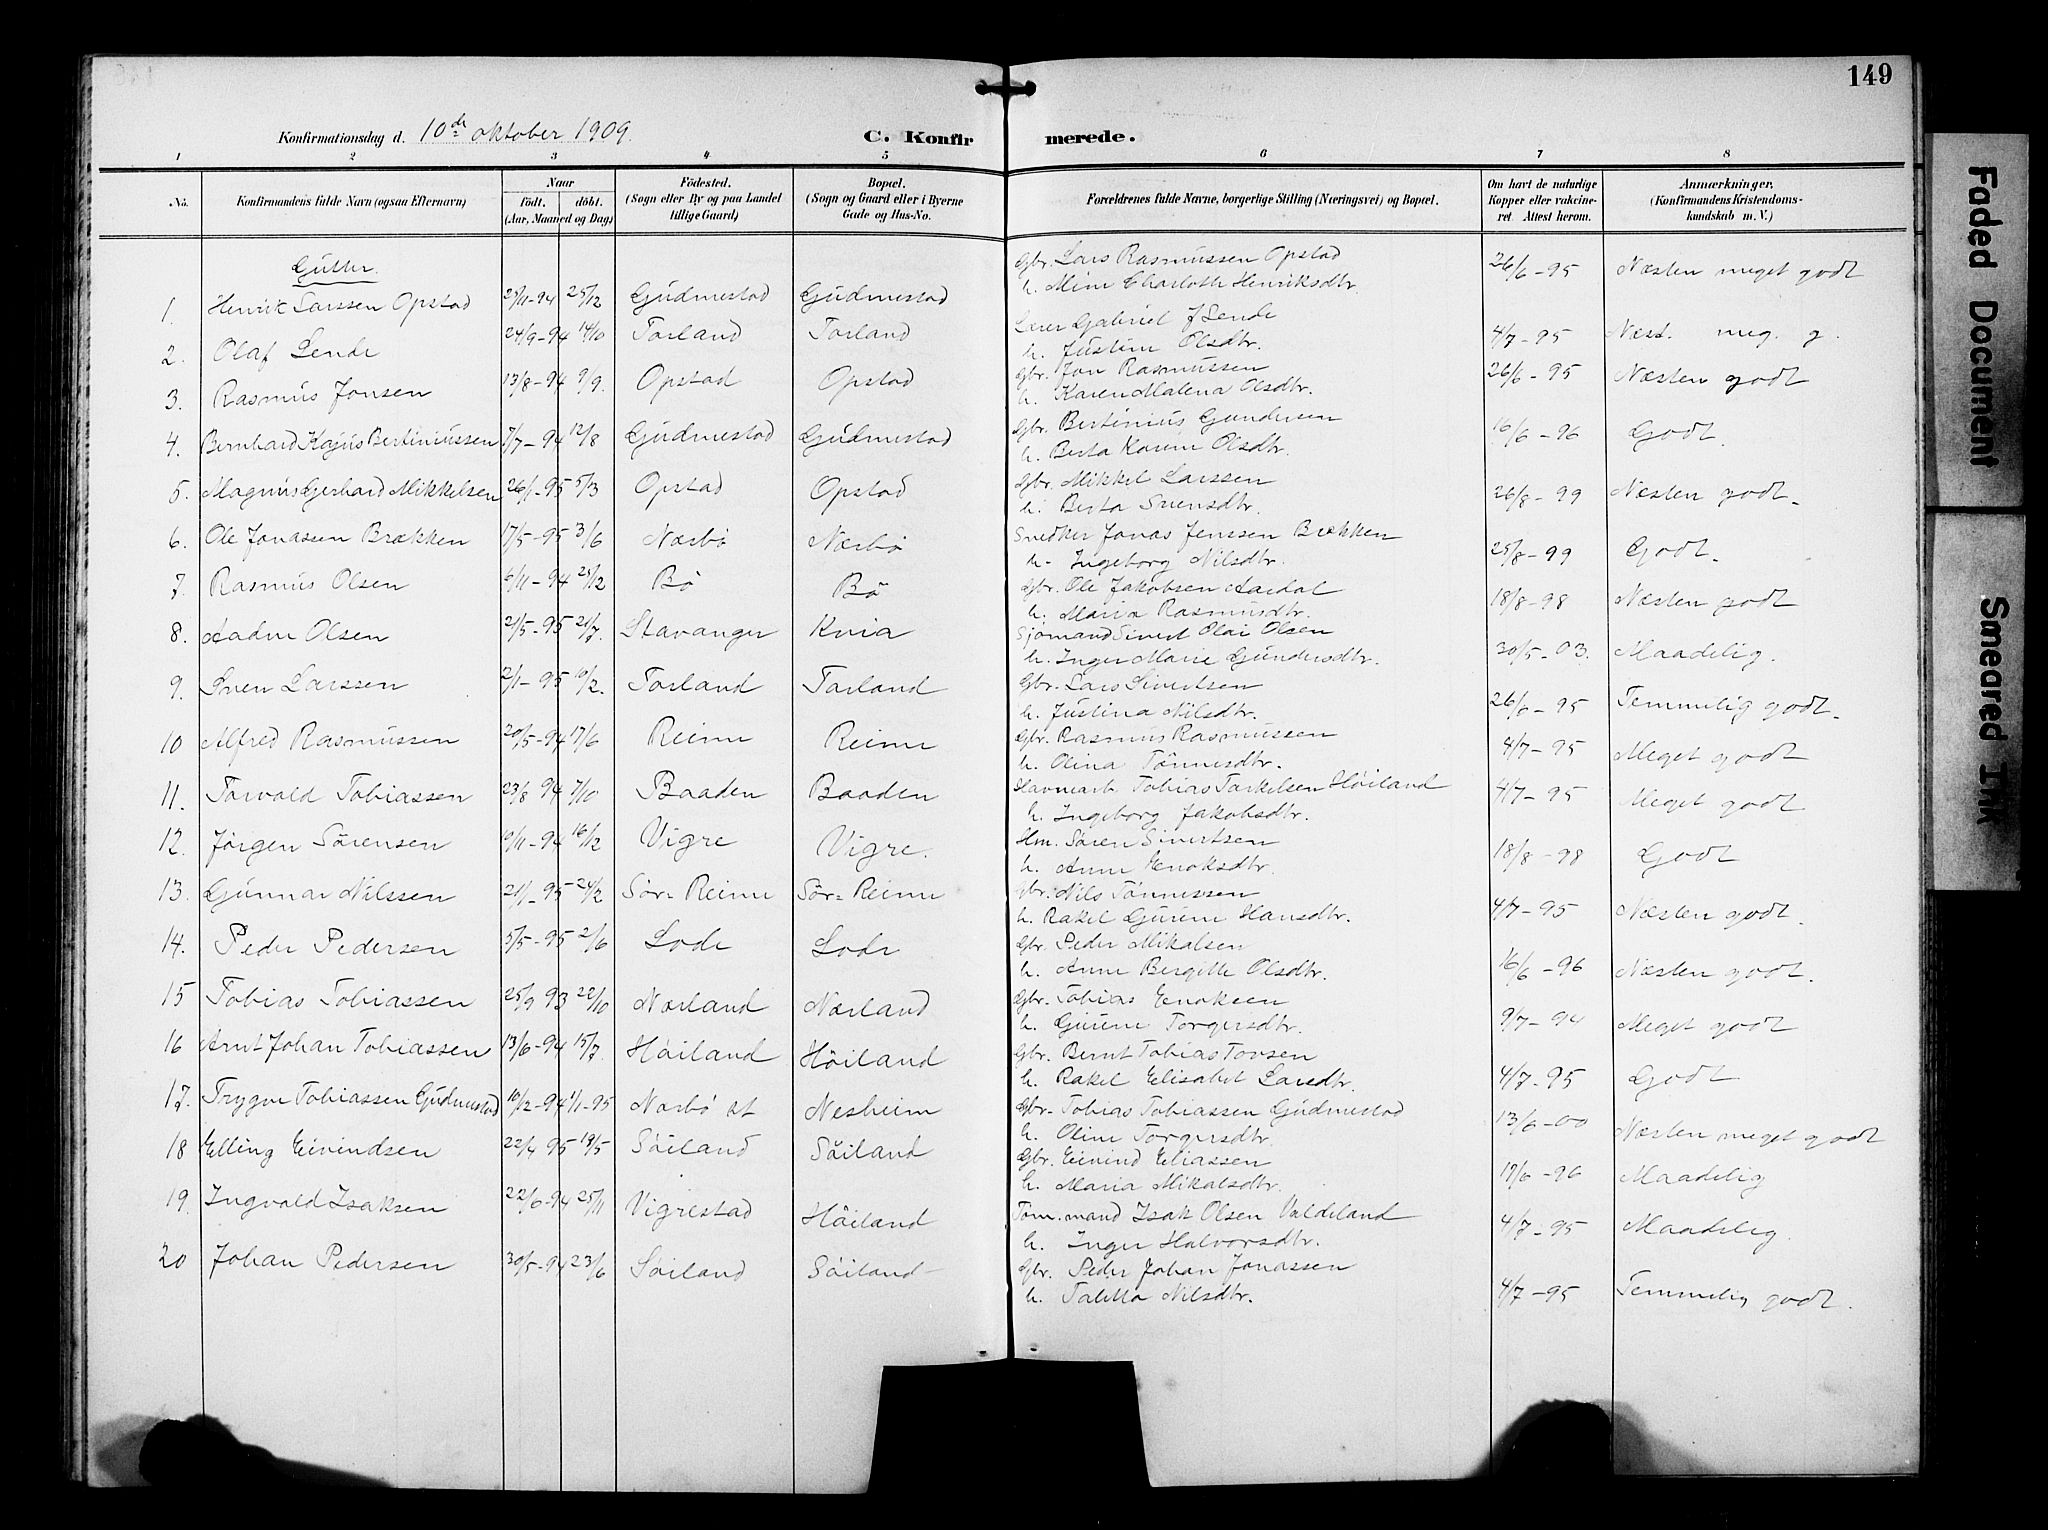 149
Konfirmationsdag d. 10de oktober 1909. C. Konfir merede.
1 2 3 4 5 6 7 8
No. Konfirmandens fulde Navn (ogsaa Efternavn) Naar Födt. döbt. (Aar, Maaned og Dag) Födested. (Sogn eller By og paa Landet tillige Gaard) Bopæl. (Sogn og Gaard eller i Byerne Gade og Hus-No. Forældrenes fulde Navne, borgerlige Stilling (Næringsvei) og Bopæl. Om havt de naturlige Kopper eller vakcineret. Attest herom. Anmærkninger. (Konfirmandens Kristendomskundskab m. V.)
Gutter.
1. Henrik Larssen Opstad 25/11-94 25/12 Gudmestad Gudmestad Gbr. Lars Rasmussen Opstad 26/6-95 Næsten meget godt
h. Mine Charloth Henriksdtr.
2. Olaf Lende 24/9-94 14/10 Torland Torland Lærer Gabriel J Lende 4/7-95 Næst. meg. g.
h. Justine Olsdtr.
3. Rasmus Jonsen 13/8-94 9/9. Opstad Opstad Gbr. Jon Rasmussen 26/6-95 Næsten godt
h. Karen Malena Olsdtr.
4. Bernhard Kajus Bertiniussen 7/7-94 12/8 Gudmestad Gudmestad Gbr. Bertinius Gundersen 16/6-96 Godt.
h. Berta Karine Olsdtr.
5. Magnus Gerhard Mikkelsen 26/1-95 5/3 Opstad Opstad Gbr. Mikkel Larssen 26/8-99 Næsten godt.
h. Berta Svensdtr.
6. Ole Jonassen Brækken 17/5-95 3/6 Nærbö Nærbö Snedker Jonas Jenssen Brækken 25/8-99 Godt.
h. Ingeborg Nilsdtr.
7. Rasmus Olsen 6/11-94 25/12 Bö Bö Gbr. Ole Jakobsen Aardal 18/8-98 Næsten godt
h. Maria Rasmusdtr.
8. Aadne Olsen 21/5-95 21/7. Stavanger Kvia Sjömand Sivert Olai Olsen 30/5-03. Maadelig.
h. Inger Marie Gundersdtr.
9. Sven Larssen 2/1-95 10/2. Torland Torland Gbr. Lars Sivertsen 26/6-95 Temmelig godt.
h. Justina Nilsdtr.
10 Alfred Rasmussen 20/5-94 17/6 Reime Reime Gbr. Rasmus Rasmussen 4/7-95 Meget godt
h. Olina Tönnesdtr.
11. Torvald Tobiassen 23/8 94 7/10 Baaden Baaden Havnearb. Tobias Torkelsen Höiland 4/7-95 Meget godt
h. Ingeborg Jakobsdtr.
12. Jörgen Sörensen 10/11-94 16/12 Vigre Vigre. Hm. Sören Sivertsen 18/8-98 Godt
h. Anne Enoksdtr.
13. Gunnar Nilssen 21/1-95 24/2 Sör=Reime Sör=Reime Gbr. Nils Tönnessen 4/7-95 Næsten godt.
h. Rakel Gurine Hansdtr.
14. Peder Pedersen 5/5-95 2/6 Lode Lode Gbr. Peder Mikalsen 16/6-96 Næsten godt.
h. Anne Bergitte Olsdtr.
15 Tobias Tobiassen 25/9 93 22/10 Nærland Nærland Gbr. Tobias Enoksen 9/7-94 Meget godt
h. Gurine Torgersdtr.
16 Arnt Johan Tobiassen 13/6-94 15/7. Höiland Höiland Gbr. Bernt Tobias Tovsen 4/7-95 Godt
h. Rakel Elisabet Larsdtr.
17. Trygve Tobiassen Gudmestad 10/12-94 1/1-95 Nærbö st Nesheim Gbr. Tobias Tobiassen Gudmestad 13/6-00 Næsten meget godt
h. Oline Torgersdtr.
18 Elling Eivindsen 22/4 95 19/5 Söiland Söiland Gbr. Eivind Eliassen 17/6-96 Maadelig
h. Maria Mikalsdtr.
19. Ingvald Isaksen 22/6-94 25/11 Vigrestad Höiland Töm.mand Isak Olsen Valdeland 4/7-95 Maadelig.
h. Inger Halvorsdtr.
20 Johan Pedersen 30/5-94 23/6 Söiland Söiland Gbr. Peder Johan Jonassen 4/7-95 Temmelig godt.
h. Taletta Nilsdtr.
Faded Document
Smeared Ink